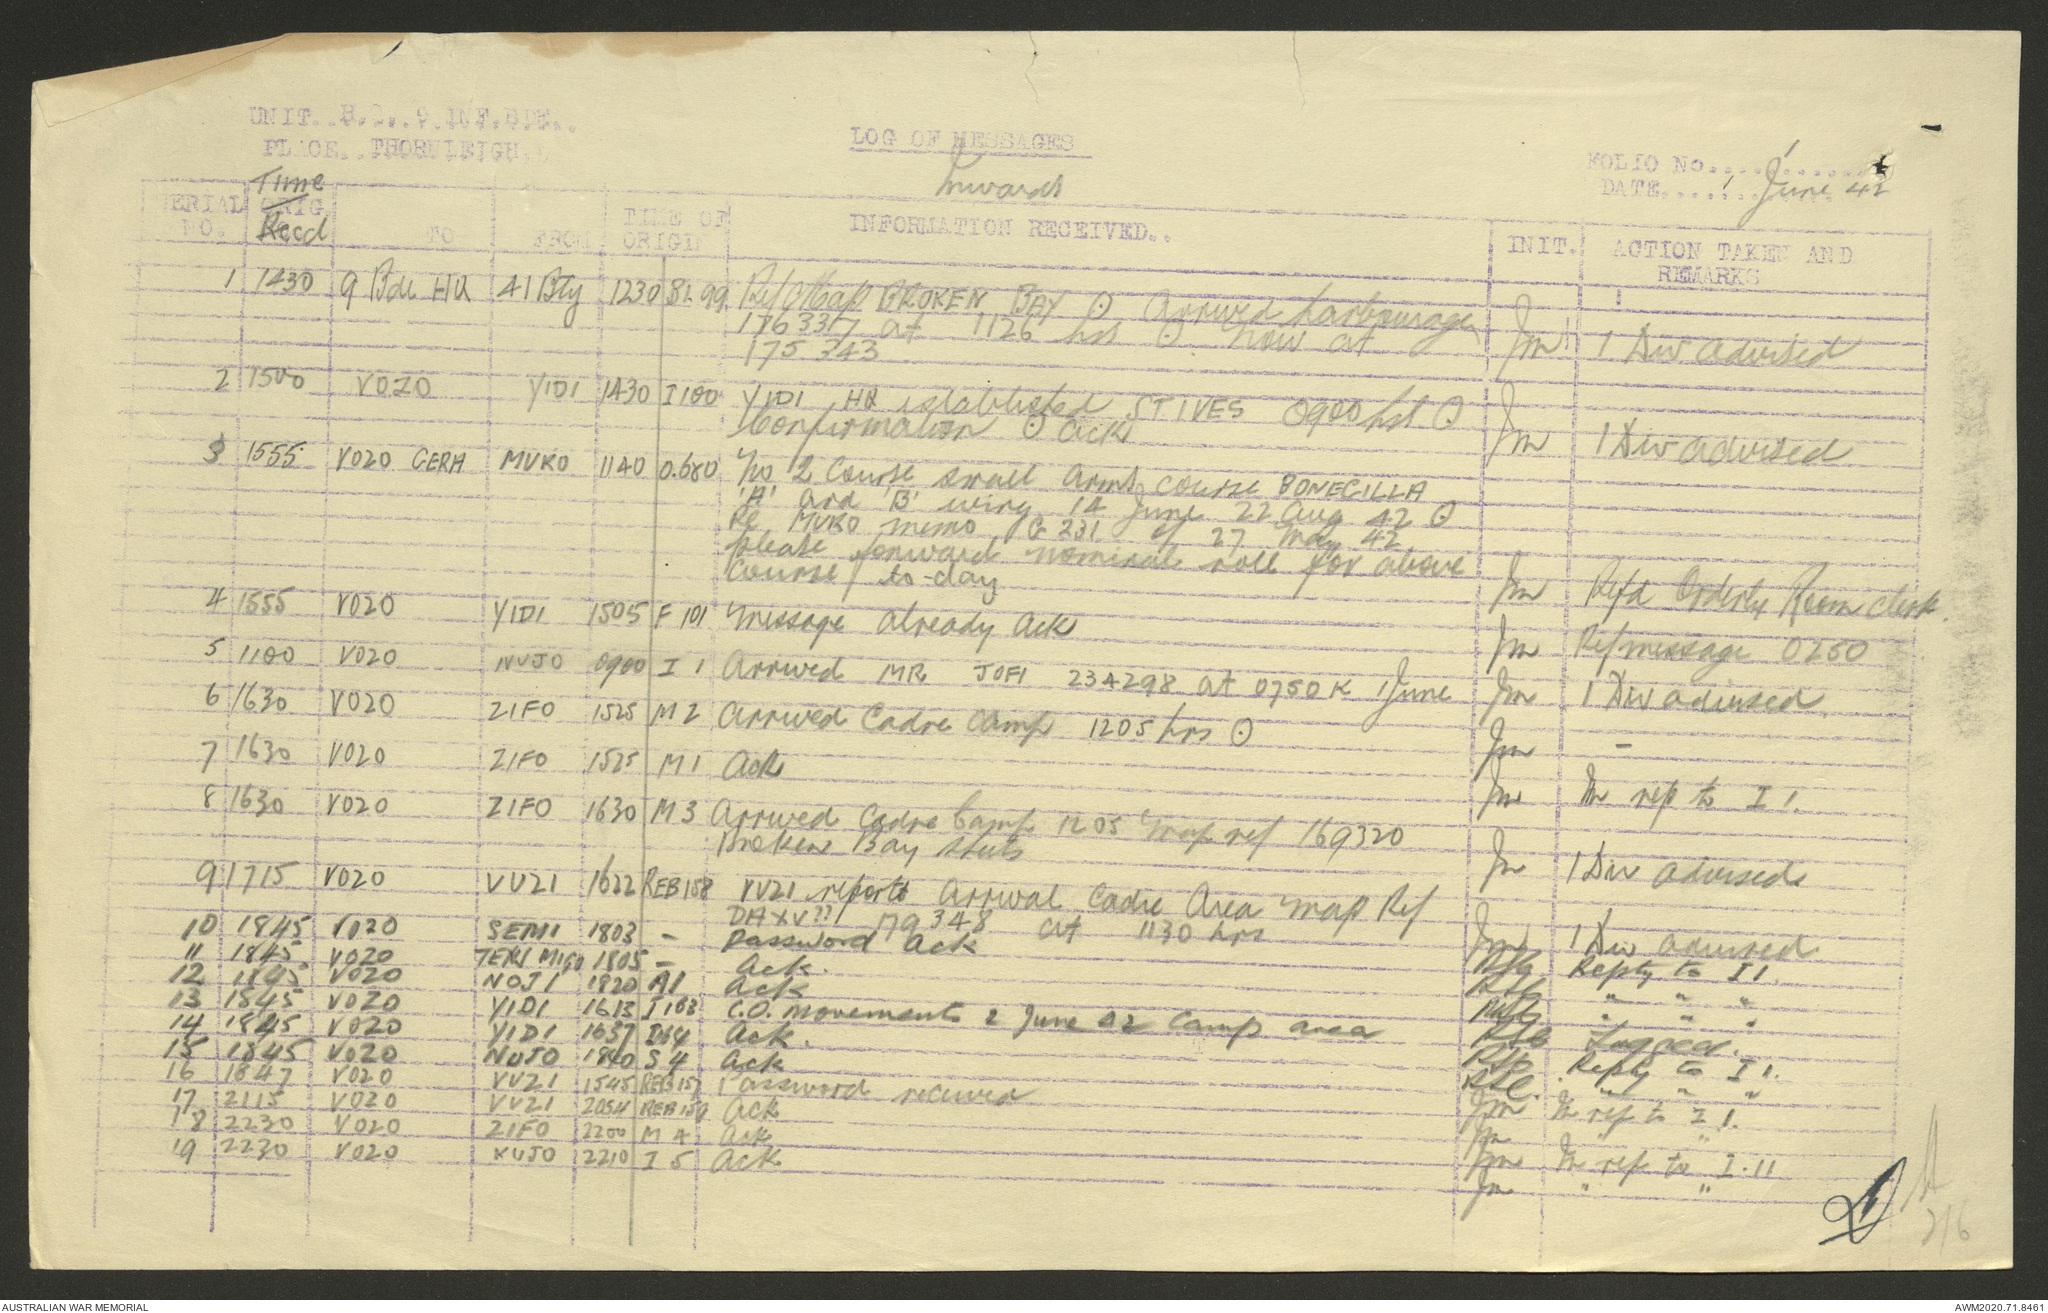 UNIT. H.Q. 9 INF.BDE..
PLACE. THORNLEIGH.
LOG OF MESSAGES
Inwards
FOLIO NO....1
DATE....1 June 42
SERIAL NO. Time ORIG. Recd TO FROM TIME OF ORIGIN INFORMATION RECEIVED.. INIT. ACTION TAKEN AND REMARKS
1 1430 9 Bde HQ 41 Bty 1230 BL 99 Ref Map BROKEN BAY ⊙ Arrived harbourage
176337 at 1126 hrs ⊙ now at
175343 Jm 1 Div advised
2 1500 VOZO YIDI 1430 I100 YIDI HQ established ST IVES 0900 hrs ⊙
Confirmation ⊙ ack Jm 1 Div advised
3 1555 VOZO GERA MUKO 1140 O.680 No 2 Course small arms course BONEGILLA
'A' and 'B' wing 14 June 22 Aug 42 ⊙
Re MUKO memo G 231 of 27 May 42
please forward nominal roll for above
course to-day Jm Refd Orderly Room clerk.
4 1555 VOZO YIDI 1505 F 101 Message already ack Jm Ref message 0250
5 1100 VOZO NUJO 0900 I 1 Arrived MR JOFI 234298 at 0750K 1 June Jm 1 Div advised
6 1630 VOZO ZIFO 1525 M 2 Arrived Cadre Camp 1205 hrs ⊙ Jm -
7 1630 VOZO ZIFO 1525 M 1 Ack Jm In rep to I 1.
8 1630 VOZO ZIFO 1630 M 3 Arrived Cadre Camp 1205 Map ref 169320
Broken Bay sheet Jm 1 Div advised
9 1715 VOZO VUZI 1622 REB158 VUZI reports arrival Cadre Area Map Ref
179348 at 1130 hrs Jm 1 Div advised
10 1845 VOZO SEMI 1803 - Password Ack Reply to I 1.
11 1845 VOZO TERI MIGO 1805 - Ack. " " "
12 1845 VOZO NOJI 1820 A1 Ack " " "
13 1845 VOZO YIDI 1613 I 103 C.O. movements 2 June 42 Camp area Logged.
14 1845 VOZO YIDI 1637 Ack. Reply to I 1.
15 1845 VOZO NUJO 1840 S 4 Ack " " "
16 1847 VOZO VUZI 1545 REB157 Password received Jm In rep to I 1.
17 2115 VOZO VUZI 2054 REB159 Ack Jm "
18 2230 VOZO ZIFO 2200 M 4 Ack Jm In rep to I.11
19 2230 VOZO NUJO 2210 I 5 Ack Jm " "
2/6
AUSTRALIAN WAR MEMORIAL
AWM2020.71.8461